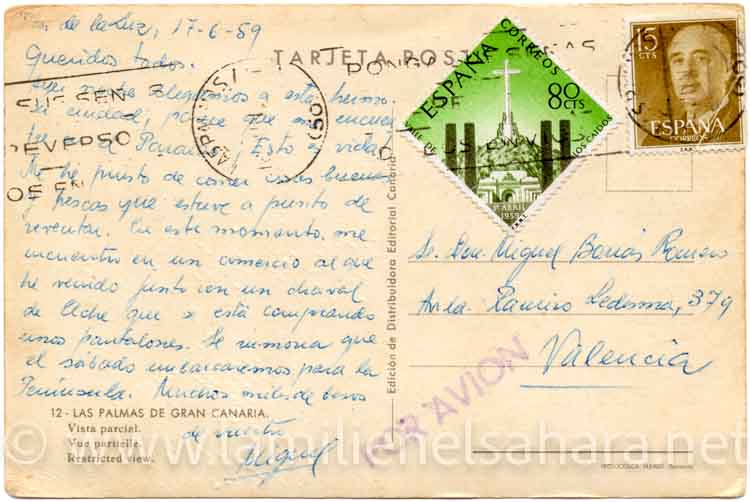 de la Luz, 17-6-59
Queridos todos.
noche llegamos a esta hermo
sa ciudad, parece que me encuen
tre en el Paraiso ¡Esto es vida!
Me he puesto de comer cosas buenas
y frescas que estuve a punto de
reventar. En este momento me
encuentro en un comercio al que
he venido junto con un chaval
de Elche que se está comprando
unos pantalones. Se rumorea que
el sábado embarcaremos para la
Península. Muchos miles de besos
de vuestro
Miguel
12 - LAS PALMAS DE GRAN CANARIA.
Vista parcial.
Vue partielle.
Restricted view.
TARJETA POST
Edición de Distribuidora Editorial Canaria
PONGA
SEÑAS
EN
REVERSO
DE
LAS PALMAS
CORREOS
ESPAÑA
80 CTS
CAIDOS
1º ABRIL
1959
15
CTS
ESPAÑA
CORREOS
Sr. Don Miguel Barrás Romero
Avda. Ramiro Ledesma, 379
Valencia
POR AVION
© www.lamilienelsahara.net